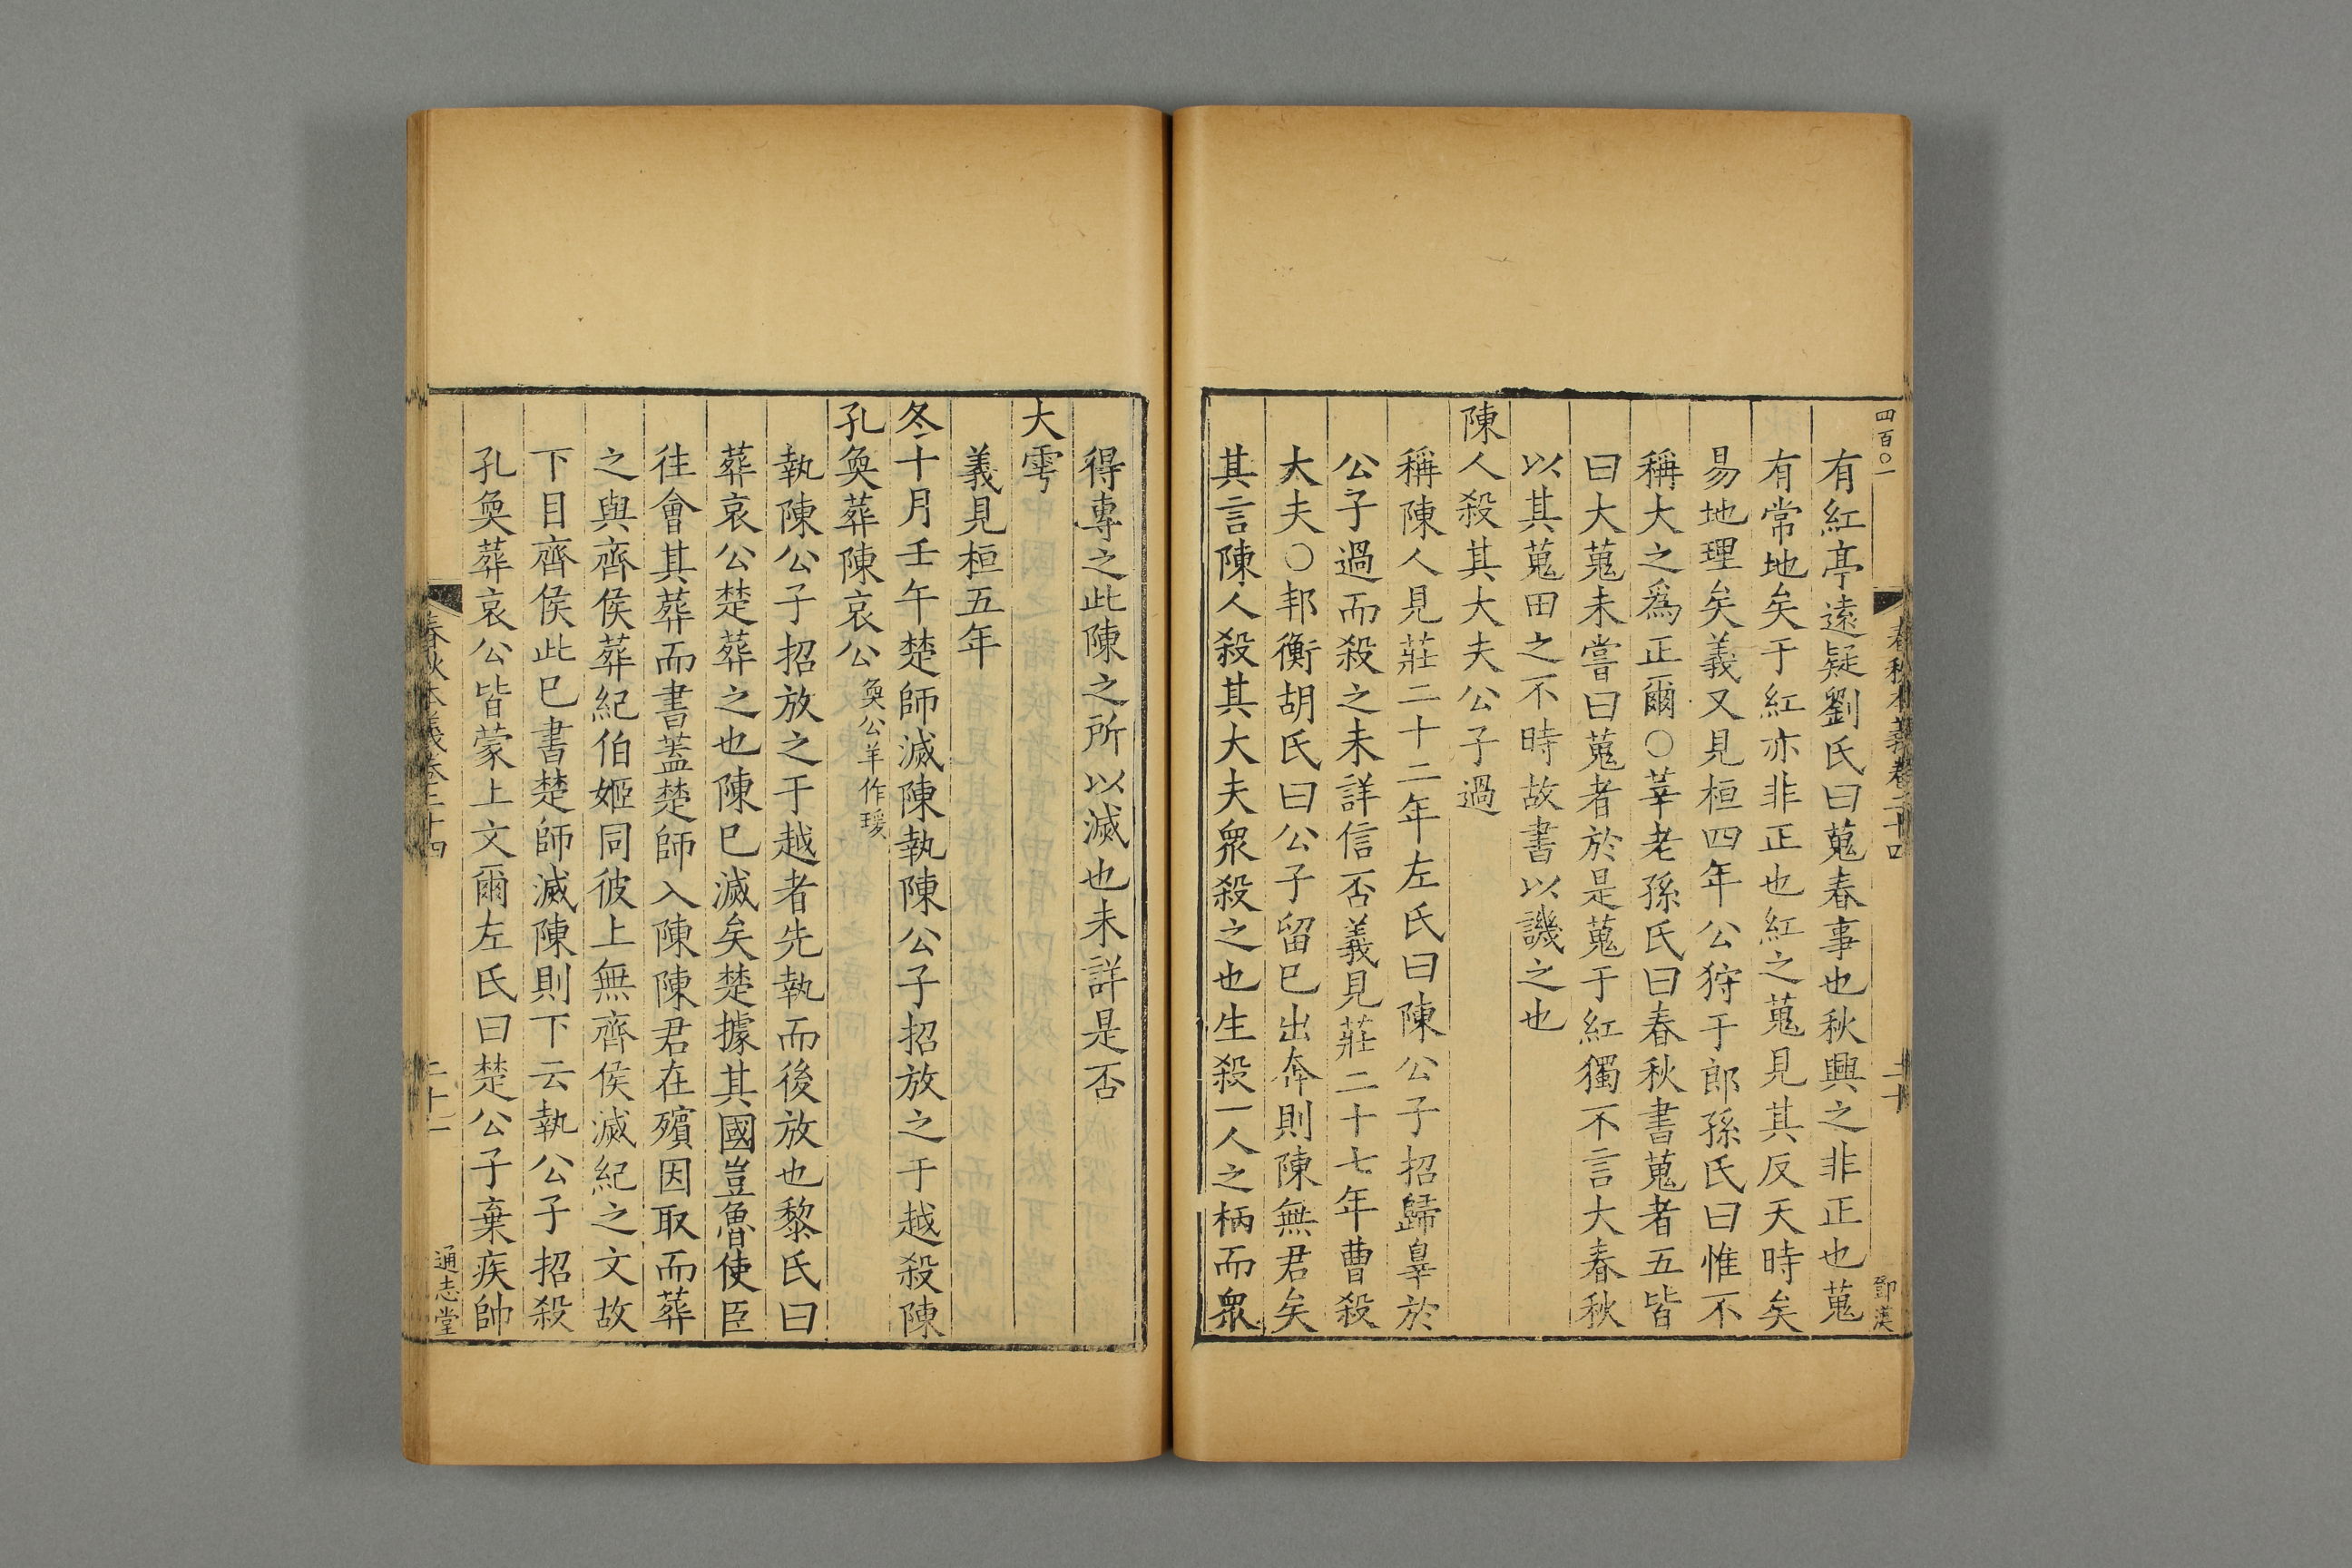 四百〇一
春秋本義卷二十四
二十
鄧漢
有紅亭遠疑劉氏曰蒐春事也秋興之非正也蒐
有常地矣于紅亦非正也紅之蒐見其反天時矣
易地理矣義又見桓四年公狩于郎孫氏曰惟不
稱大之爲正爾○莘老孫氏曰春秋書蒐者五皆
曰大蒐未嘗曰蒐者於是蒐于紅獨不言大春秋
以其蒐田之不時故書以譏之也
陳人殺其大夫公子過
稱陳人見莊二十二年左氏曰陳公子招歸辠於
公子過而殺之未詳信否義見莊二十七年曹殺
大夫○邦衡胡氏曰公子留巳出奔則陳無君矣
其言陳人殺其大夫衆殺之也生殺一人之柄而衆
得專之此陳之所以滅也未詳是否
大雩
義見桓五年
冬十月壬午楚師滅陳執陳公子招放之于越殺陳
孔奐葬陳哀公 奐公羊作瑗
執陳公子招放之于越者先執而後放也黎氏曰
葬哀公楚葬之也陳巳滅矣楚據其國豈魯使臣
往會其葬而書蓋楚師入陳陳君在殯因取而葬
之與齊侯葬紀伯姬同彼上無齊侯滅紀之文故
下目齊侯此巳書楚師滅陳則下云執公子招殺
孔奐葬哀公皆蒙上文爾左氏曰楚公子棄疾帥
春秋本義卷二十四
二十一
通志堂